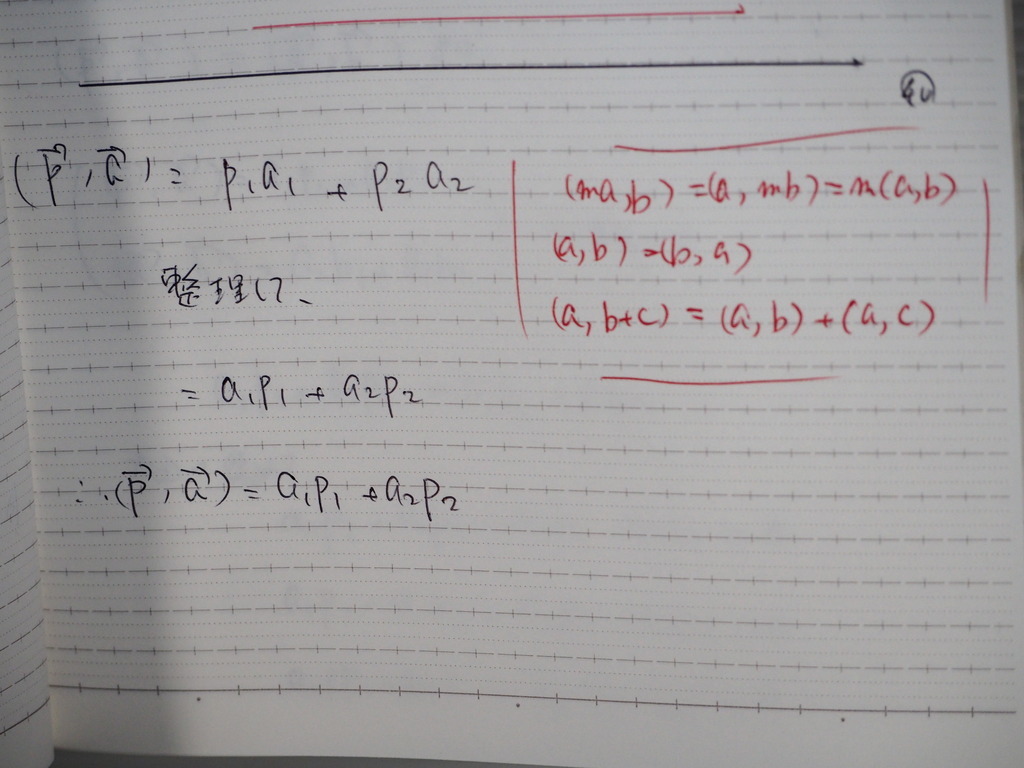 (p⃗, a⃗) = p₁a₁ + p₂a₂
整理して、
= a₁p₁ + a₂p₂
∴ (p⃗, a⃗) = a₁p₁ + a₂p₂
(ma, b) = (a, mb) = m(a, b)
(a, b) = (b, a)
(a, b+c) = (a, b) + (a, c)